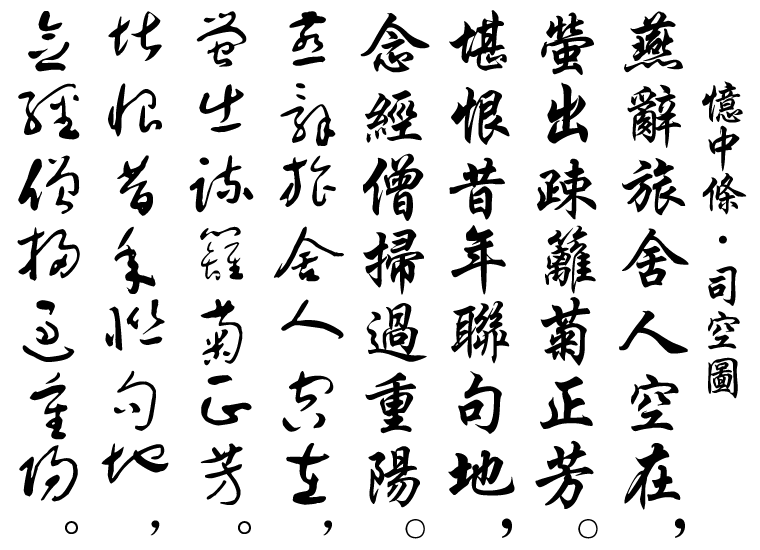 憶中條·司空圖
燕辭旅舍人空在，
螢出疎籬菊正芳。
堪恨昔年聯句地，
念經僧掃過重陽。
燕辭旅舍人空在，
螢出疎籬菊正芳。
堪恨昔年聯句地，
念經僧掃過重陽。